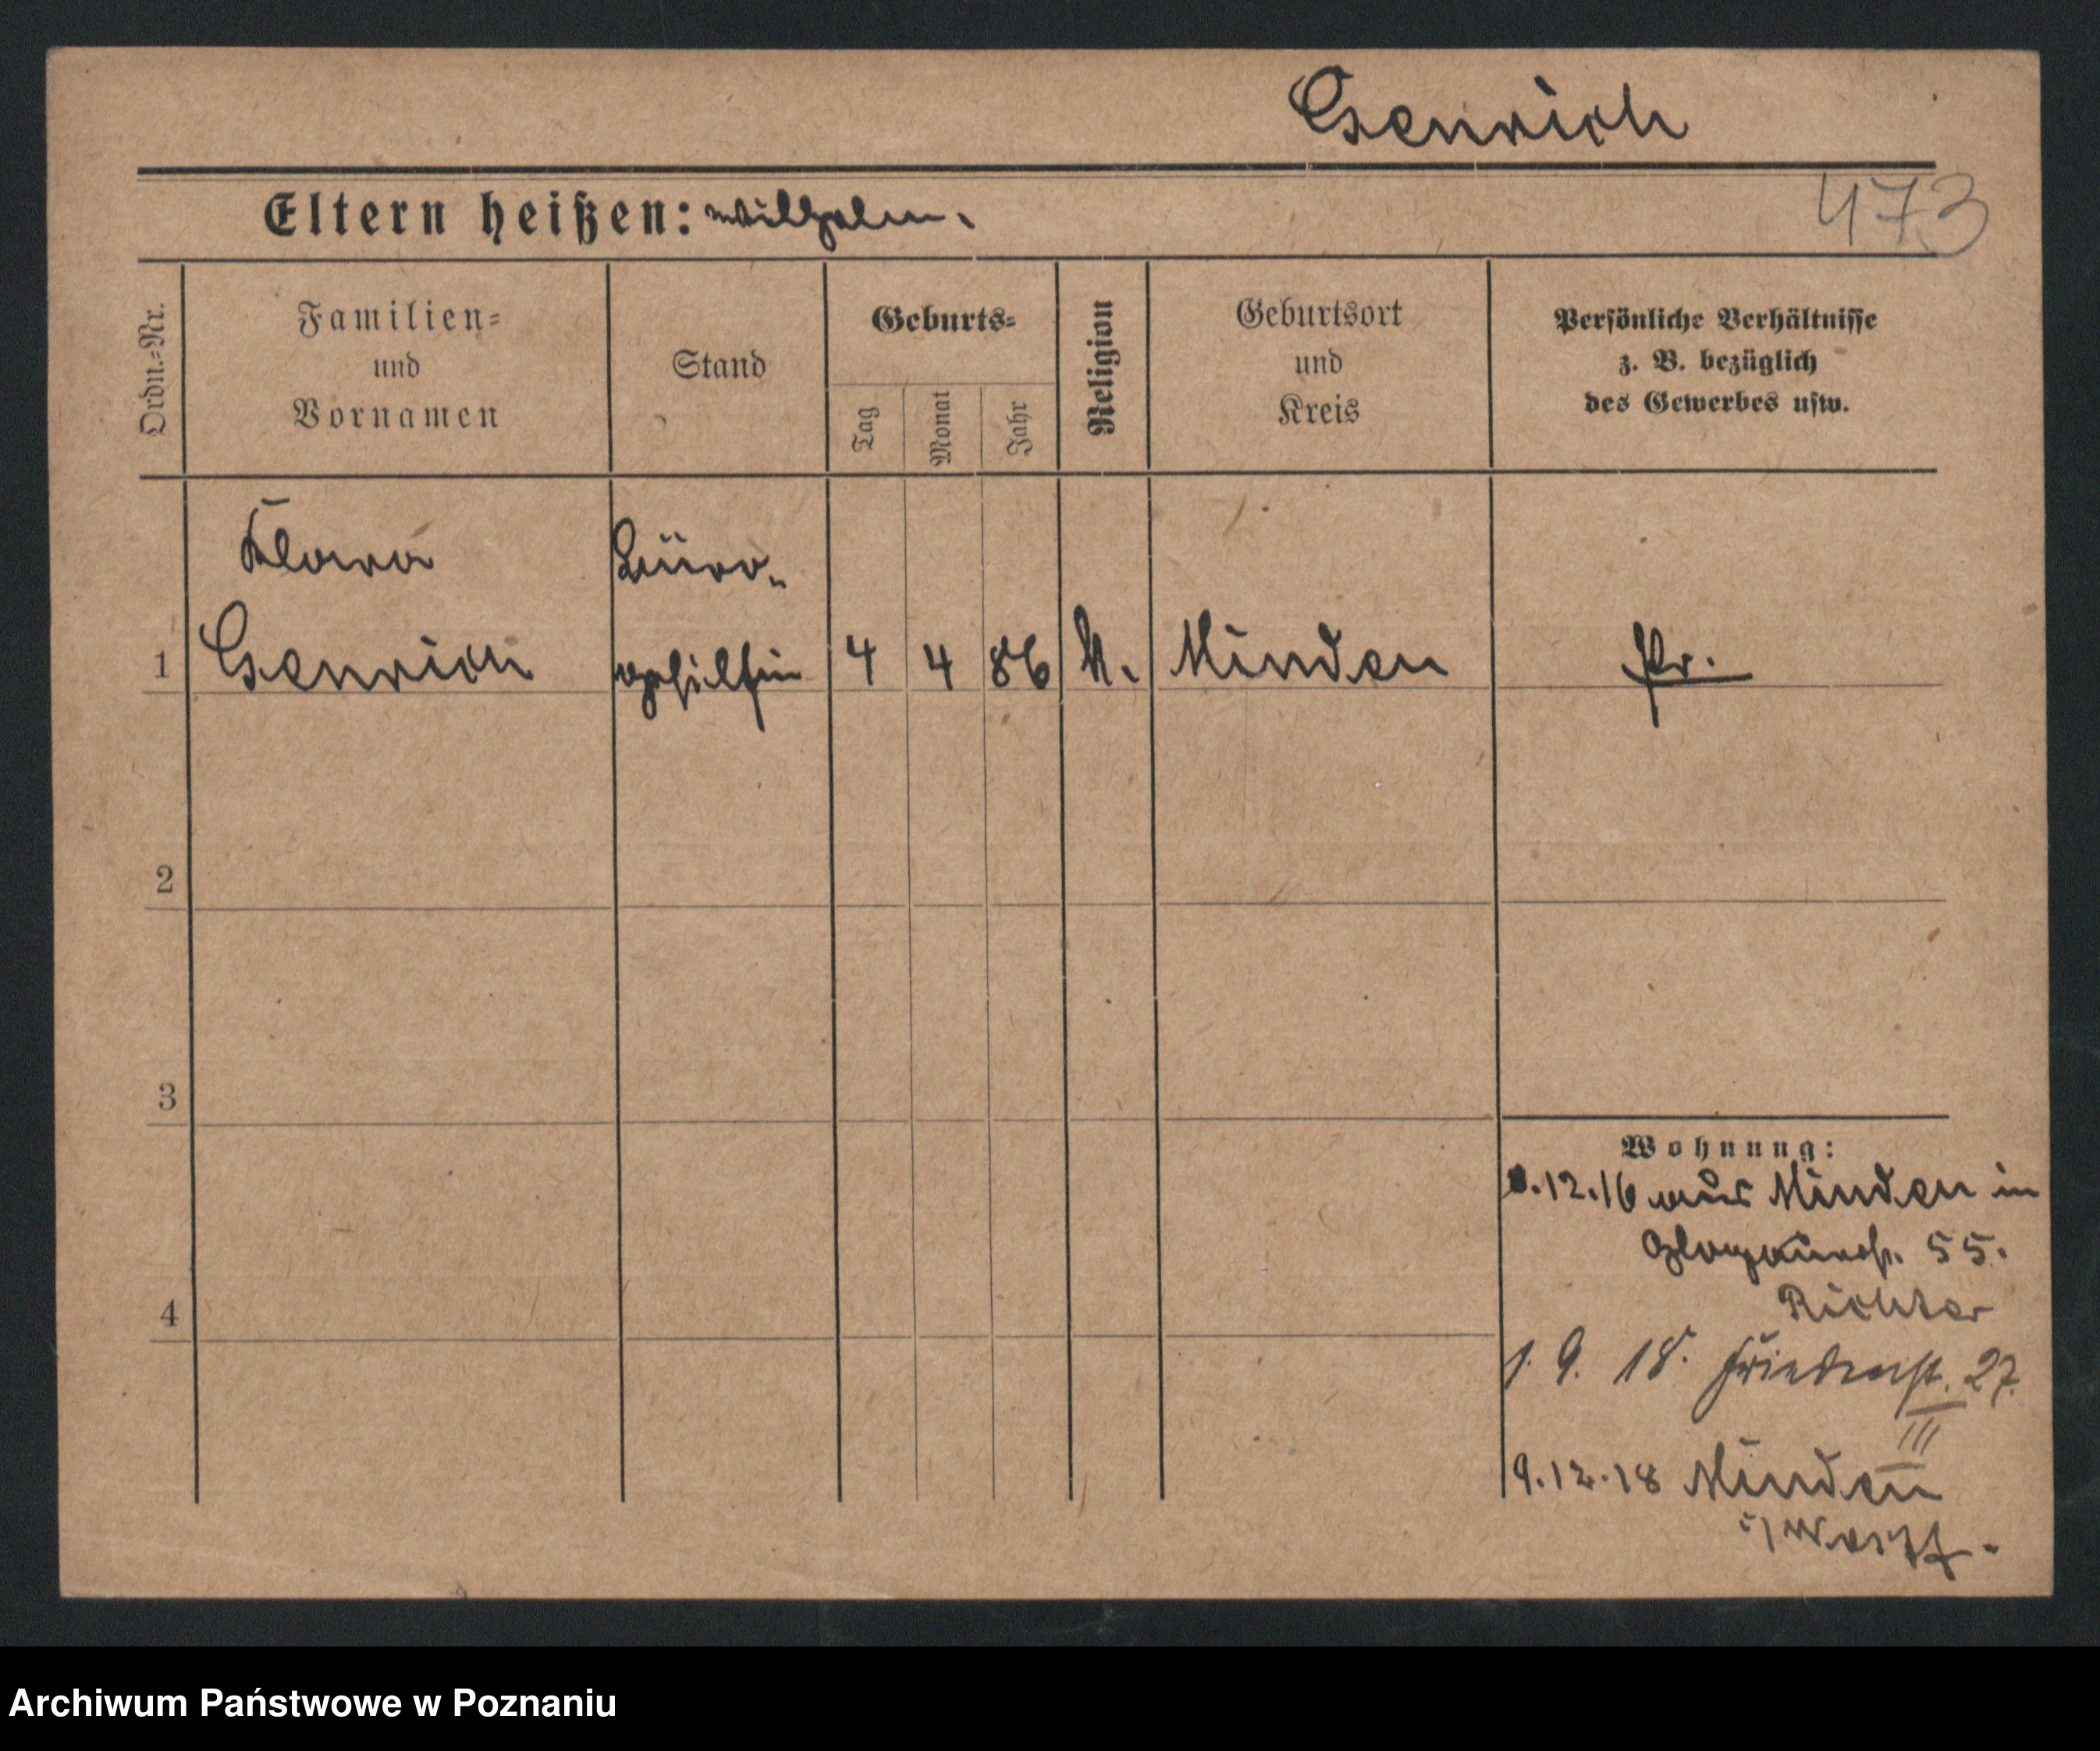 Genrich
473
Eltern heißen: Wilhelm.
Ordn.=Nr.
Familien=
und
Vornamen
Stand
Geburts=
Tag
Monat
Jahr
Religion
Geburtsort
und
Kreis
Persönliche Verhältnisse
z. B. bezüglich
des Gewerbes usw.
Klara
Büro-
1 Genrich gehilfin 4 4 86 k. Minden Pr.
2
3
4
Wohnung:
.12.16 aus Minden in
Glogauerstr. 55.
Richter
1. 9. 18. 27.
III
9.12.18 Minden
i/ Westf.
Archiwum Państwowe w Poznaniu